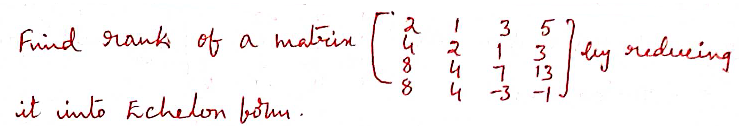 Find rank of a matrix [2 1 3 5
4 2 1 3
8 4 7 13
8 4 -3 -1] by reducing
it into Echelon form.